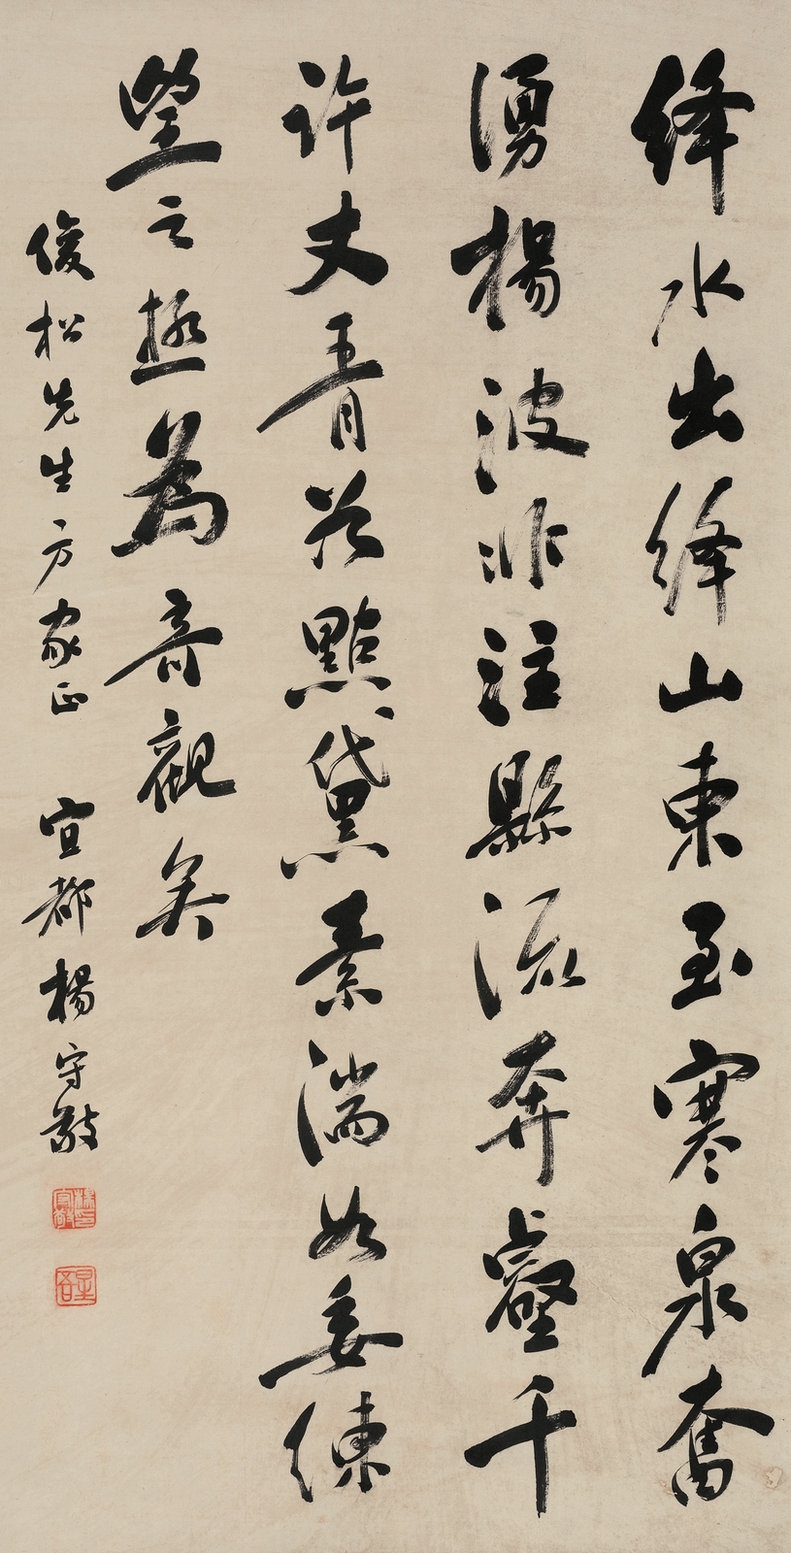 絳水出絳山東至寒泉奮
湧楊波非注縣流奔壑千
許丈青若點黛素湍如委練
望之極為奇觀矣
俊松先生方家正 宜都楊守敬
楊守敬印
星吾